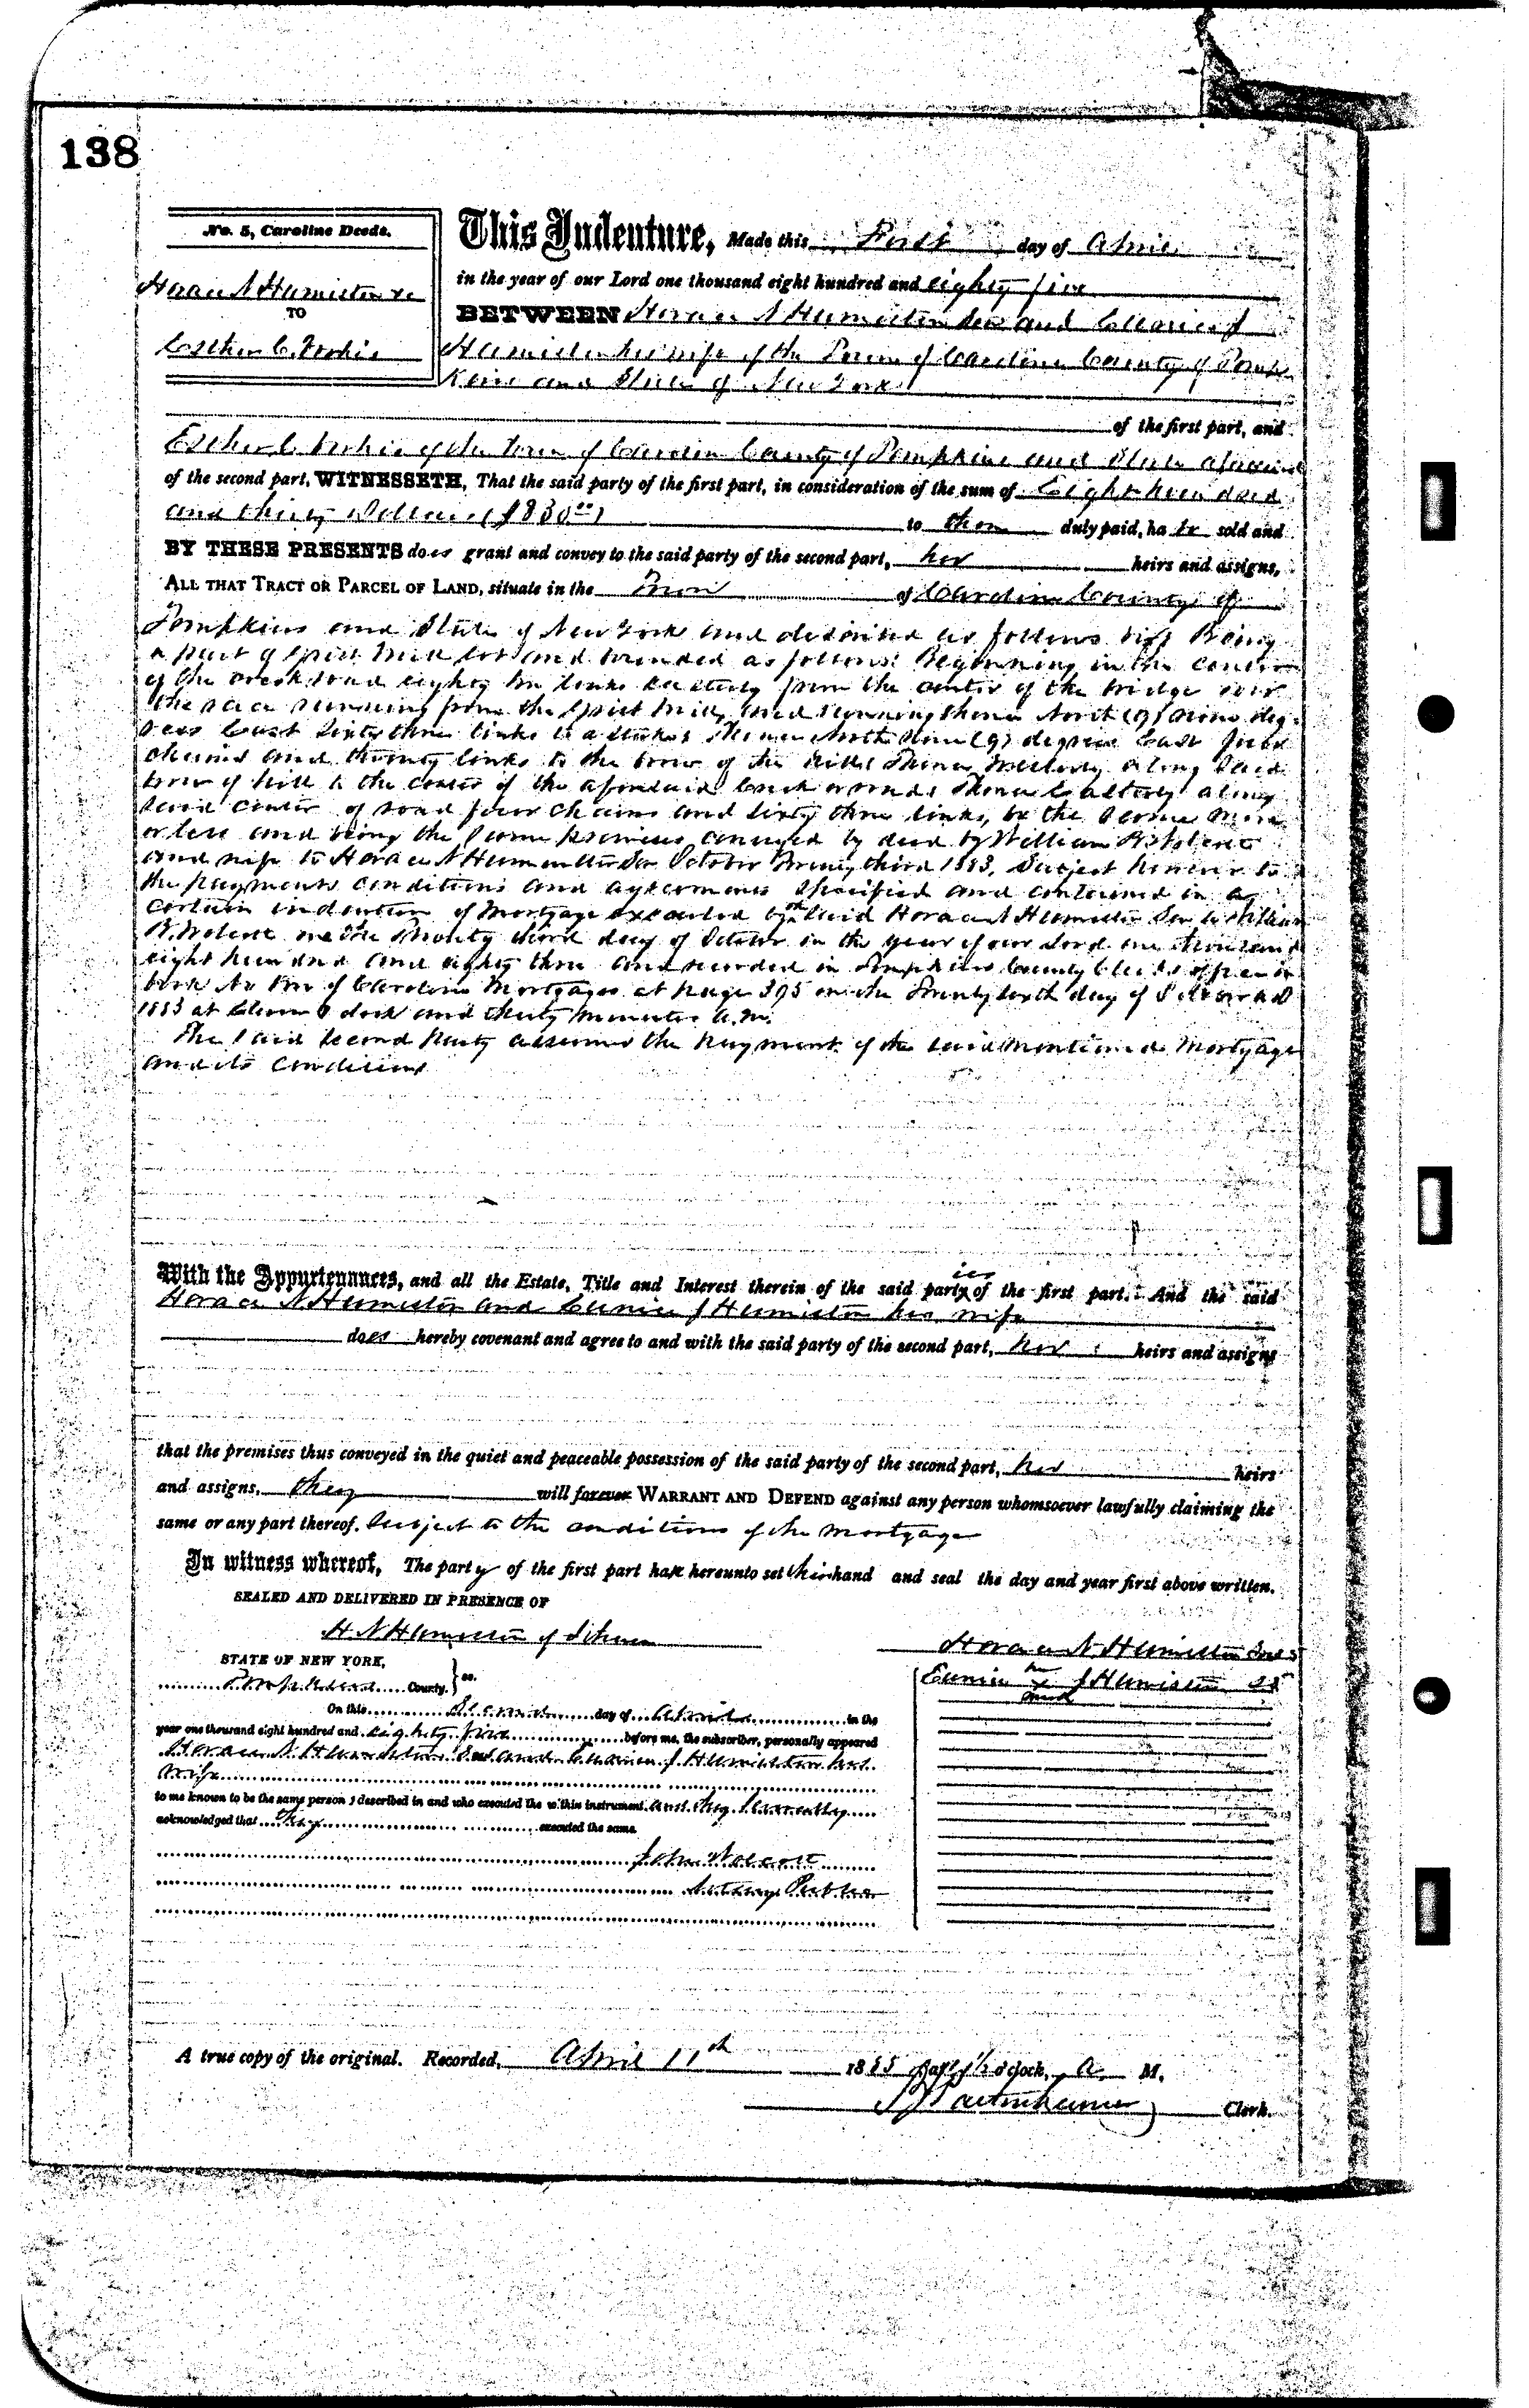 138
No. 5, Caroline Deeds.
This Indenture, Made this First day of April
in the year of our Lord one thousand eight hundred and eighty five
Horace N Humiston &c
TO
BETWEEN Horace N Humiston Sen and Eunice J
Esther C.
Humiston his wife of the Town of Caroline County of Tomp
kins and State of New York
of the first part, and
Esther C of the Town of Caroline County of Tompkins and State aforesaid
of the second part, WITNESSETH, That the said party of the first part, in consideration of the sum of Eight hundred
and thirty Dollars ($830 00)
to them duly paid, ha ve sold and
BY THESE PRESENTS does grant and convey to the said party of the second part, her heirs and assigns,
ALL THAT TRACT OR PARCEL OF LAND, situate in the Town of Caroline County of
Tompkins and State of New York and described as follows viz Being
a part of Grist Mill lot and bounded as follows: Beginning in the center
of the creek road eighty two links Easterly from the center of the bridge over
the race running from the Grist Mill, and running thence North (9) nine deg-
rees East Sixty three links to a stake; Thence North Nine (9) degrees East four
chains and twenty links to the brow of the hill; Thence Westerly along said
brow of hill to the center of the aforesaid creek road; Thence Easterly along
said center of road four chains and sixty three links, be the same more
or less and being the same premises conveyed by deed by William
and wife to Horace N Humiston Sen October Twenty third 1883, Subject however to
the payments conditions and agreements specified and contained in a
certain indenture of Mortgage executed by the said Horace N Humiston Sen to William
on the Twenty third day of October in the year of our Lord one thousand
eight hundred and eighty three and recorded in Tompkins County Clerks office in
book No of Caroline Mortgages at page 395 on the Twenty sixth day of October A D
1883 at Eleven O clock and thirty minutes A.M.
The said Second Party assumes the payment of the said mentioned Mortgage
and its conditions
With the Appurtenances, and all the Estate, Title and Interest therein of the said parties of the first part. And the said
Horace N Humiston and Eunice J Humiston his wife
does hereby covenant and agree to and with the said party of the second part, her heirs and assigns
that the premises thus conveyed in the quiet and peaceable possession of the said party of the second part, her heirs
and assigns, they will forever WARRANT AND DEFEND against any person whomsoever lawfully claiming the
same or any part thereof. Subject to the conditions of the Mortgage
In witness whereof, The party of the first part have hereunto set their hand and seal the day and year first above written.
SEALED AND DELIVERED IN PRESENCE OF
H N Humiston
Horace N Humiston Sen LS
STATE OF NEW YORK,
Tompkins County. } ss.
Eunice her x mark J Humiston LS
On this Second day of April in the
year one thousand eight hundred and eighty five before me, the subscriber, personally appeared
Horace N Humiston Sen and Eunice J Humiston his
wife
to me known to be the same persons described in and who executed the within instrument and they severally
acknowledged that they executed the same.
John Wolcott
Notary Public
A true copy of the original. Recorded, April 11th 1885 o'clock, A. M.
Clerk.